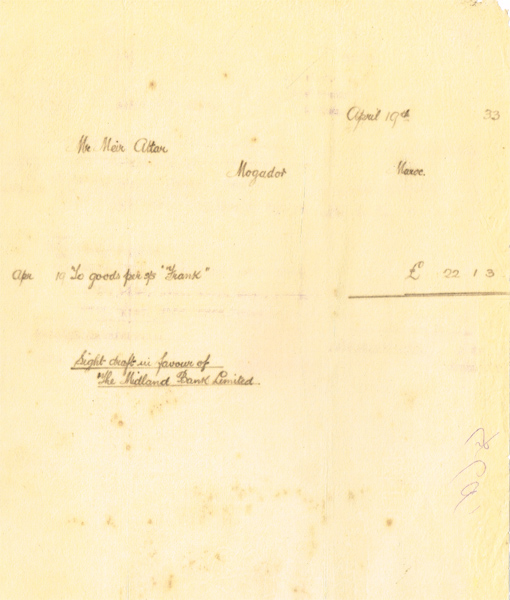 April 19th 33
Mr. Meir Attar
Mogador Maroc.
Apr 19 To goods per s/s "Frank" £ 22 1 3
Sight draft in favour of
The Midland Bank Limited.